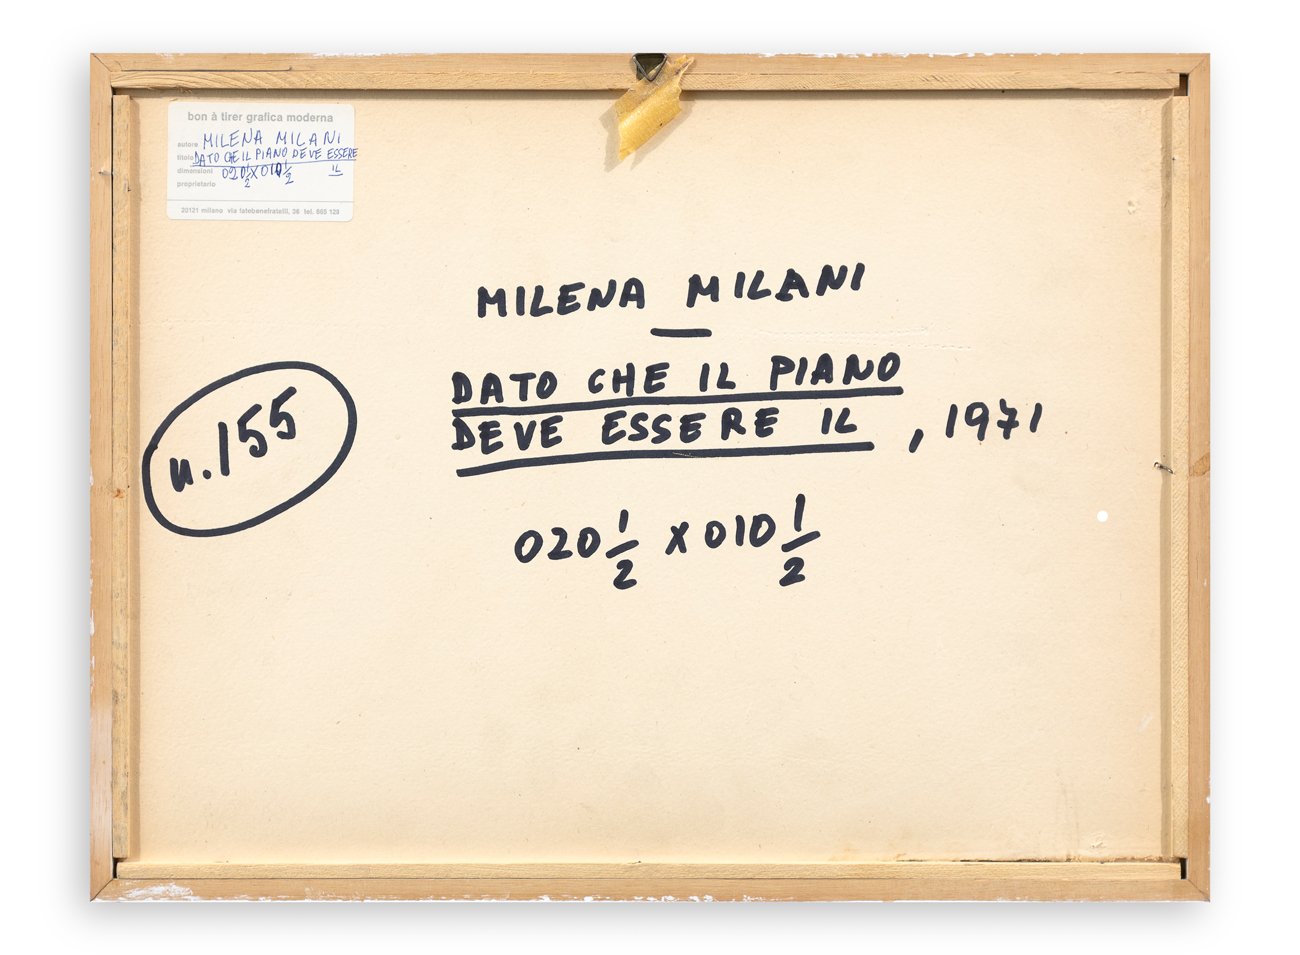 bon à tirer grafica moderna
autore MILENA MILANI
titolo DATO CHE IL PIANO DEVE ESSERE
IL
dimensioni 020 1/2 X 010 1/2
proprietario
20121 milano via fatebenefratelli, 36 tel. 665 128
MILENA MILANI
DATO CHE IL PIANO
DEVE ESSERE IL, 1971
n. 155
020 1/2 X 010 1/2